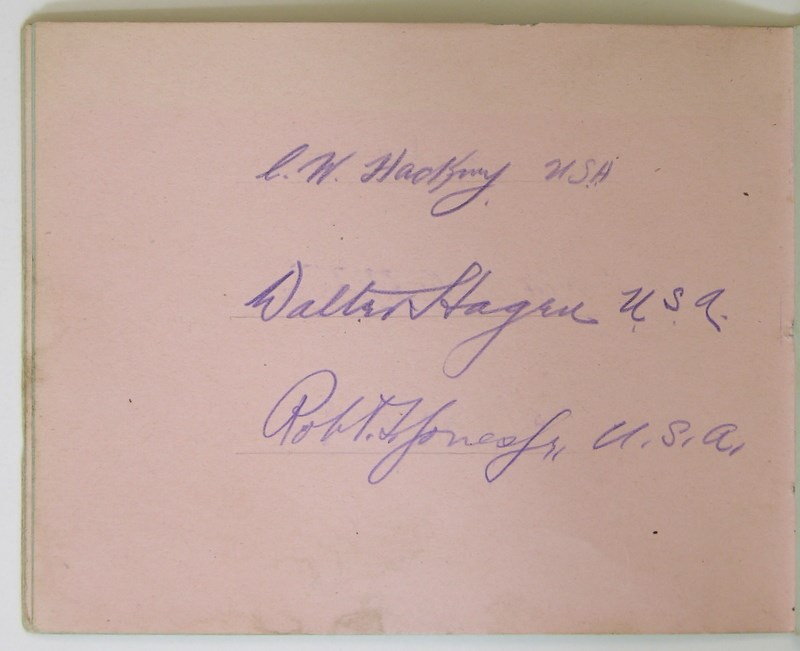 C. W. Hackney USA
Walter Hagen U.S.A.
Robt. T. Jones Jr., U.S.A.